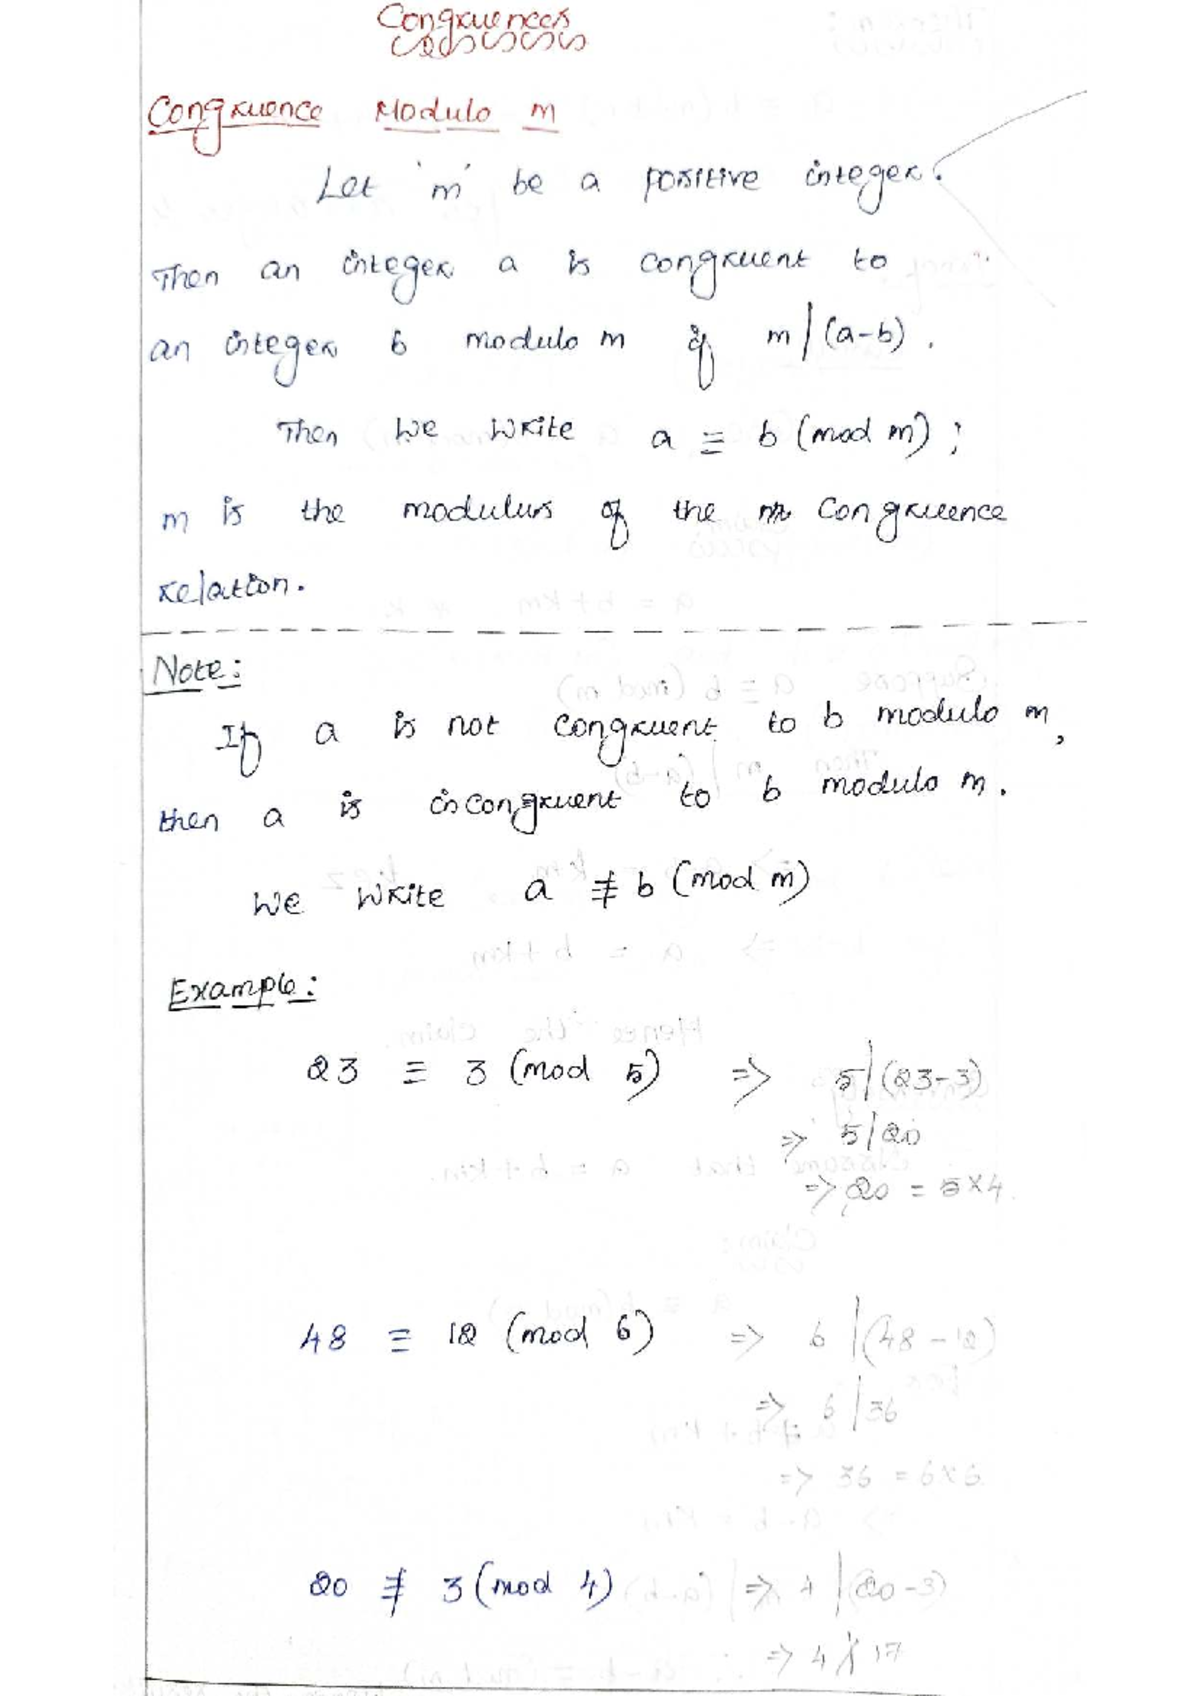 Congruences
Congruence Modulo m
Let 'm' be a positive integer.
Then an integer a is congruent to
an integer b modulo m if m | (a-b).
Then we write a ≡ b (mod m);
m is the modulus of the congruence
relation.
Note:
If a is not congruent to b modulo m,
then a is incongruent to b modulo m.
We write a ≢ b (mod m)
Example:
23 ≡ 3 (mod 5) => 5 | (23-3)
=> 5 | 20
=> 20 = 5×4.
48 ≡ 12 (mod 6) => 6 | (48-12)
=> 6 | 36
=> 36 = 6×6
20 ≢ 3 (mod 4) => 4 | (20-3)
=> 4 ∤ 17